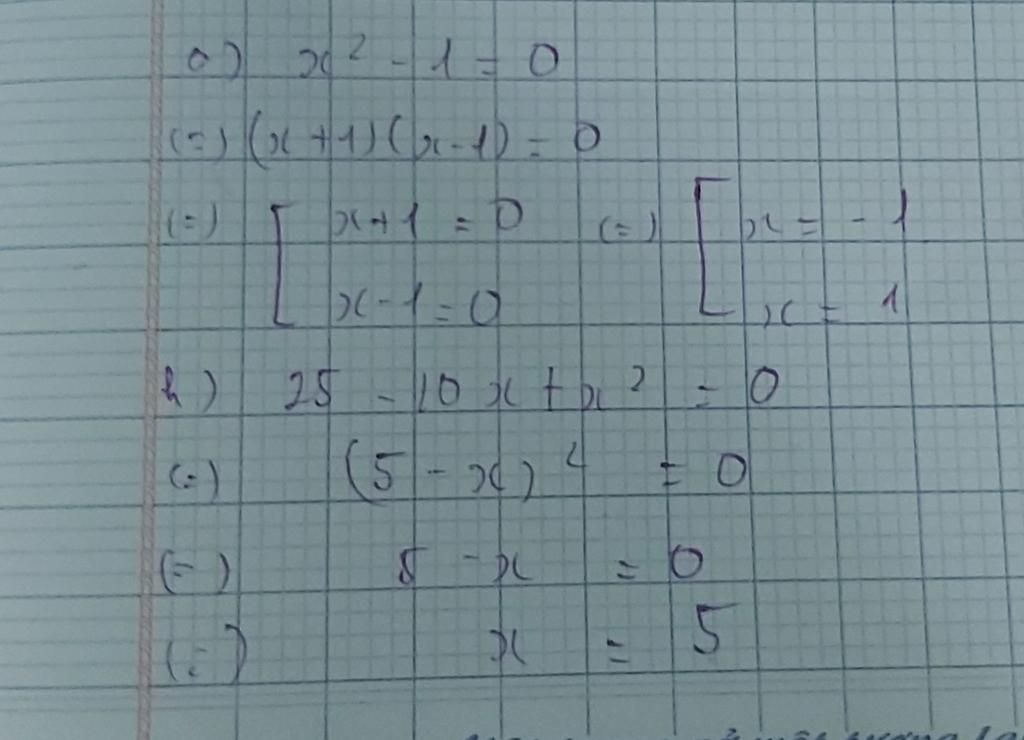 a) x² - 1 = 0
(=) (x+1)(x-1) = 0
(=) [ x+1 = 0 (=) [ x = -1
x-1 = 0 x = 1
h) 25 - 10x + x² = 0
(=) (5 - x)⁴ = 0
(=) 5 - x = 0
(=) x = 5